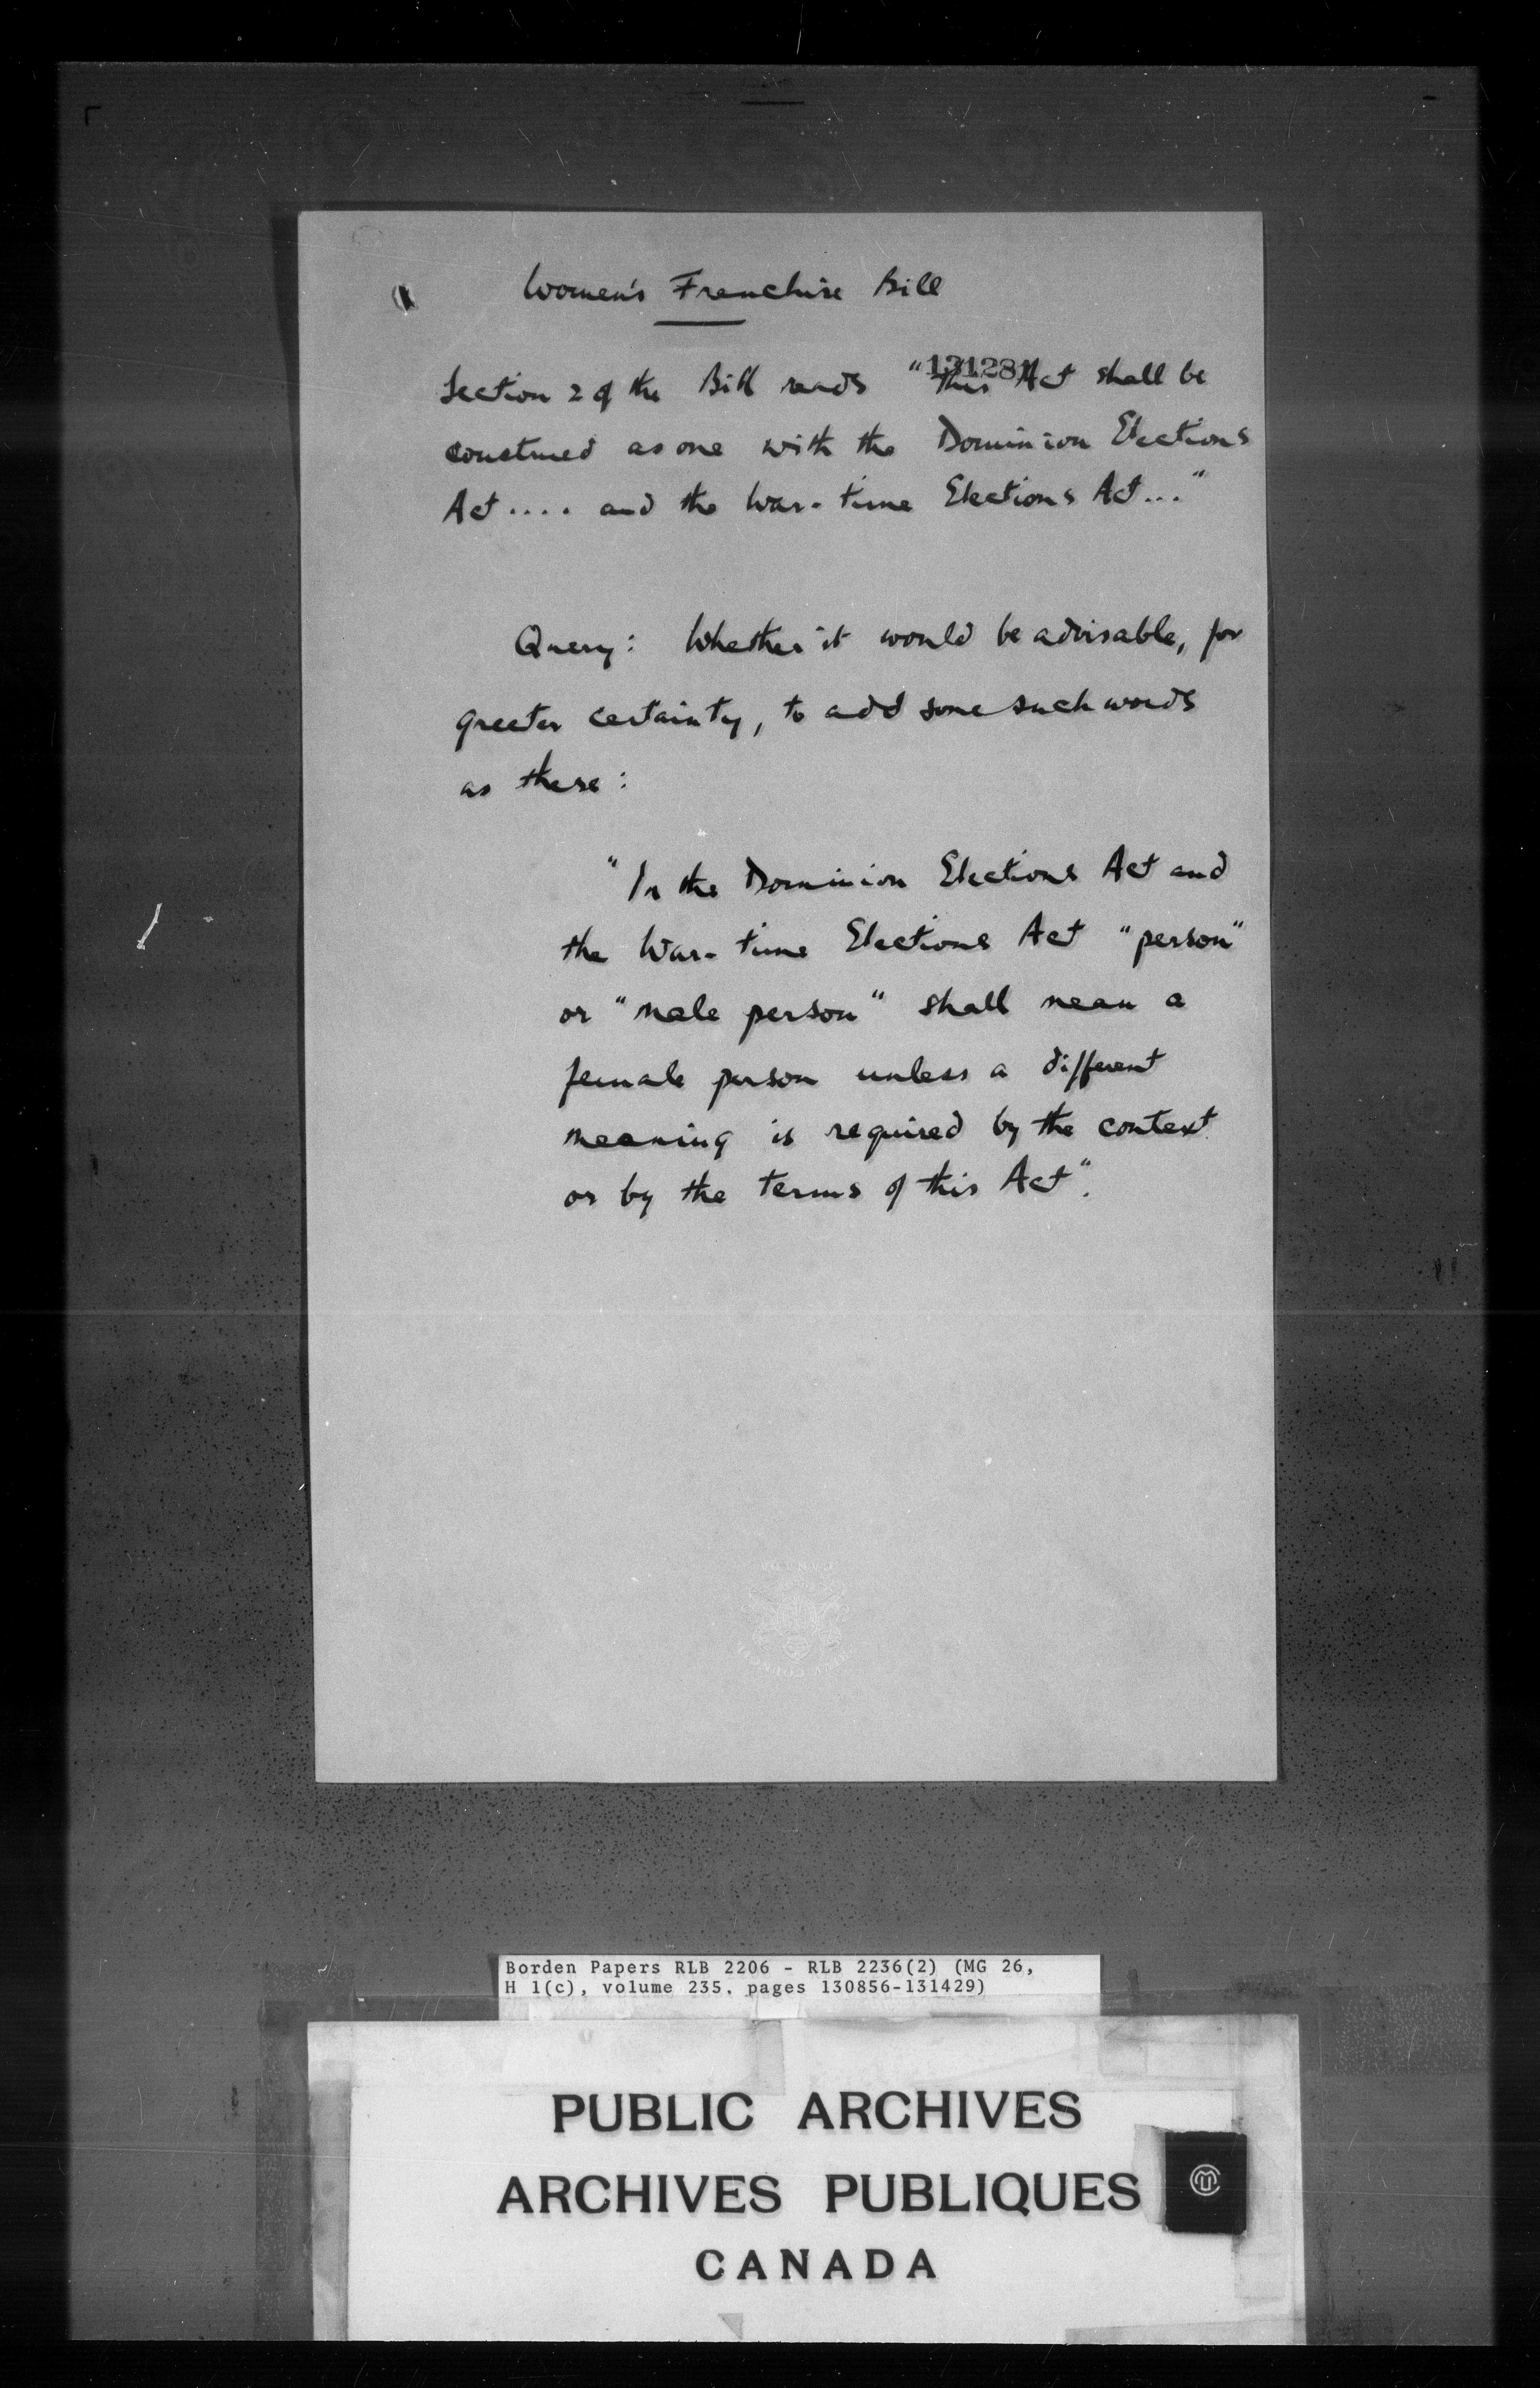 Women's Franchise Bill
131281
Section 2 of the Bill reads "This Act shall be
construed as one with the Dominion Elections
Act .... and the War-time Elections Act ..."
Query: Whether it would be advisable, for
greater certainty, to add some such words
as these:
"In the Dominion Elections Act and
the War-time Elections Act "person"
or "male person" shall mean a
female person unless a different
meaning is required by the context
or by the terms of this Act".
Borden Papers RLB 2206 - RLB 2236(2) (MG 26,
H 1(c), volume 235, pages 130856-131429)
PUBLIC ARCHIVES
ARCHIVES PUBLIQUES
CANADA